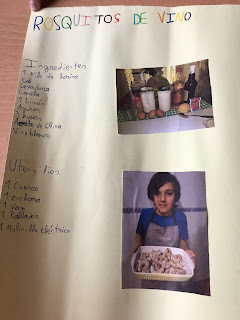 ROSQUITOS DE VINO
Ingredientes
1 Kilo de harina
Sal
Levadura
Canela
1 Limón
Azúcar
3 huevos
Aceite de oliva
Vino blanco
Utensilios
1 Cuenco
1 cuchara
1 Vaso
1 Rallador
1 Molinillo eléctrico